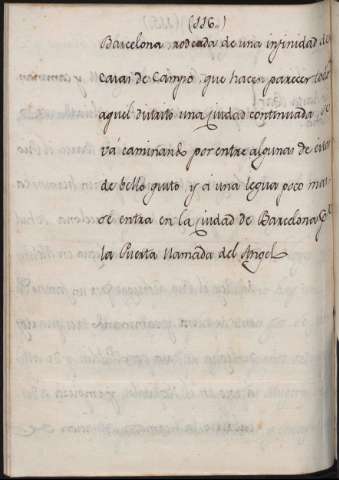 (116.)
Barcelona, rodeada de una infinidad de
casas de Campo que hacen parecer todo
aquel distrito una ciudad continuada. Se
vá caminando por entre algunas de ellas
de bello gusto, y a una legua poco mas
se entra en la ciudad de Barcelona
la Puerta llamada del Angel